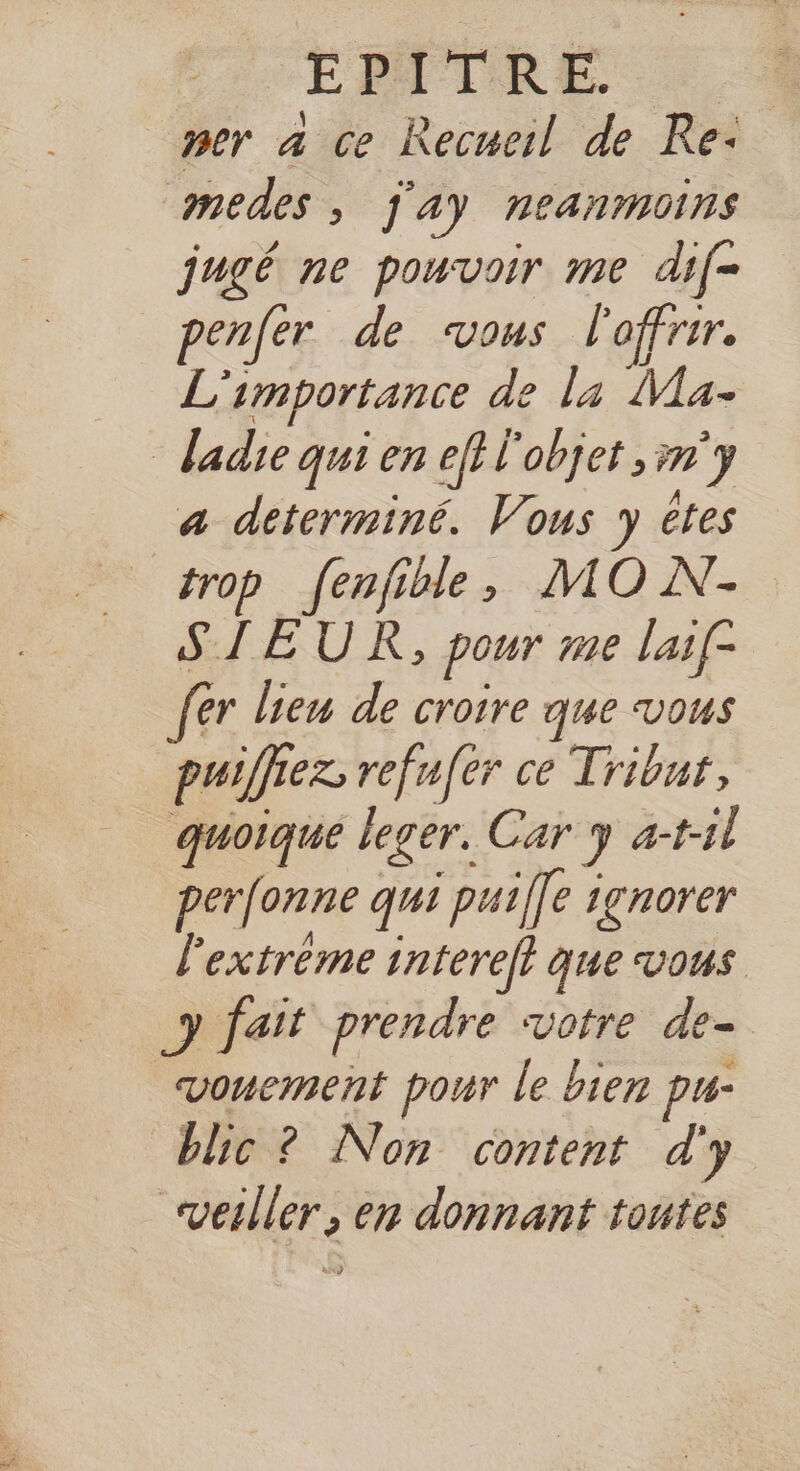 EPITRE.
ner à ce Recueil de Re-
medes, j'ay neanmoins
jugé ne pouvoir me dis-
penser de vous l'offrir.
L'importance de la Ma-
ladie qui en est l'objet, m'y
a determiné. Vous y êtes
trop sensible, MON-
SIEUR, pour me lais-
ser lieu de croire que vous
puissiez refuser ce Tribut,
quoique leger. Car y a-t-il
personne qui puisse ignorer
l'extrême interest que vous
y fait prendre votre de-
vouement pour le bien pu-
blic ? Non content d'y
veiller, en donnant toutes